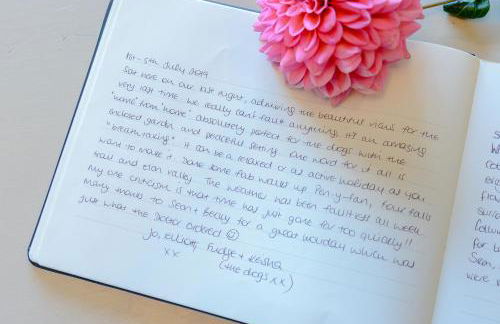 1st - 5th July 2019
Sat here on our last night, admiring the beautiful views for the
very last time. We really can't fault anything. It's an amazing
"home from home" absolutely perfect for the dogs with the
enclosed garden and peaceful setting. One word for it all is
"breathtaking". It can be a relaxed or as active holiday as you
want to make it. Done some fab walks up Pen-y-fan, four falls
trail and Elan valley. The weather has been faultless all week.
My one criticism is that time has just gone far too quickly!!
Many thanks to Sean + Becky for a great holiday which was
just what the Doctor ordered
Jo, Elliott, Fudge +
xx (the dogs xx)
S
W
co
fla
Su
follow
for b
Sean
were